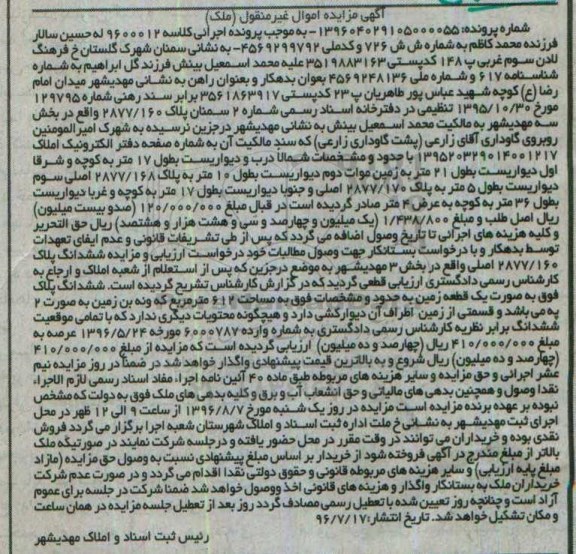 آگهی مزایده اموال غیرمنقول (ملک)
شماره پرونده: ۱۳۹۶۰۴۰۲۹۱۰۵۰۰۰۰۵۵ - به موجب پرونده اجرائی کلاسه ۹۶۰۰۰۱۲ له حسین سالار
فرزنده محمد کاظم به شماره ش ش ۷۲۶ و کدملی ۴۵۶۹۲۹۹۷۹۲ - به نشانی سمنان شهرک گلستان خ فرهنگ
لادن سوم غربی پ ۱۴۸ کدپستی ۳۵۱۹۸۸۳۱۶۳ علیه محمد اسمعیل بینش فرزند گل ابراهیم به شماره
شناسنامه ۶۱۷ و شماره ملی ۴۵۶۹۲۴۸۱۳۶ بعوان بدهکار و بعنوان راهن به نشانی مهدیشهر میدان امام
رضا (ع) کوچه شهید عباس پور طاهریان پ ۲۳ کدپستی ۳۵۶۱۸۶۳۹۱۷ برابر سند رهنی شماره ۱۲۹۷۹۵
مورخ ۱۳۹۵/۱۰/۳۰ تنظیمی در دفترخانه اسناد رسمی شماره ۲ سمنان پلاک ۲۸۷۷/۱۶۰ واقع در بخش
سه مهدیشهر به مالکیت محمد اسمعیل بینش به نشانی مهدیشهر درجزین نرسیده به شهرک امیرالمومنین
روبروی گاوداری آقای زارعی (پشت گاوداری زارعی) که سند مالکیت آن به شماره صفحه دفتر الکترونیک املاک
۱۳۹۵۲۰۳۲۹۰۱۴۰۰۱۲۱۷ با حدود و مشخصات شمالا درب و دیواریست بطول ۱۷ متر به کوچه و شرقا
اول دیواریست بطول ۲۱ متر به زمین موات دوم دیواریست بطول ۱۰ متر به پلاک ۲۸۷۷/۱۶۸ اصلی سوم
دیواریست بطول ۵ متر به پلاک ۲۸۷۷/۱۷۰ اصلی و جنوبا دیواریست بطول ۱۷ متر به کوچه و غربا دیواریست
بطول ۳۶ متر به کوچه به عرض ۴ متر صادر گردیده است در قبال مبلغ ۱۲۰/۰۰۰/۰۰۰ (صدو بیست میلیون)
ریال اصل طلب و مبلغ ۱/۴۳۸/۸۰۰ (یک میلیون و چهارصد و سی و هشت هزار و هشتصد) ریال حق التحریر
و کلیه هزینه های اجرائی تا تاریخ وصول اضافه می گردد که پس از طی تشریفات قانونی و عدم ایفای تعهدات
توسط بدهکار و با درخواست بستانکار جهت وصول مطالبات خود درخواست ارزیابی و مزایده ششدانگ پلاک
۲۸۷۷/۱۶۰ اصلی واقع در بخش ۳ مهدیشهر به موضع درجزین که پس از استعلام از شعبه املاک و ارجاع به
کارشناس رسمی دادگستری ارزیابی قطعی گردید که در گزارش کارشناس تشریح گردیده است. ششدانگ پلاک
فوق به صورت یک قطعه زمین به حدود و مشخصات فوق به مساحت ۶۱۲ مترمربع که ونه بن زمین به صورت ۲
په می باشد و قسمتی از زمین اطراف آن دیوارکشی دارد و هیچگونه محتویات دیگری ندارد که با تمامی موقعیت
ششدانگ برابر نظریه کارشناس رسمی دادگستری به شماره وارده ۶۰۰۰۷۸۷ مورخه ۱۳۹۶/۵/۲۴ عرصه به
مبلغ ۴۱۰/۰۰۰/۰۰۰ ریال (چهارصد و ده میلیون) ارزیابی گردیده است که مزایده از مبلغ ۴۱۰/۰۰۰/۰۰۰
(چهارصد و ده میلیون) ریال شروع و به بالاترین قیمت پیشنهادی واگذار خواهد شد در ضمنا در روز مزایده نیم
عشر اجرائی و حق مزایده و سایر هزینه های مربوطه طبق ماده ۴۰ آئین نامه اجراء مفاد اسناد رسمی لازم الاجراء،
نقدا وصول و همچنین بدهی های مالیاتی و حق انشعاب آب و برق و کلیه بدهی های ملک فوق به دولت که مشخص
نبوده بر عهده برنده مزایده است مزایده در روز یک شنبه مورخ ۱۳۹۶/۸/۷ از ساعت ۹ الی ۱۲ ظهر در محل
اجرای ثبت مهدیشهر به نشانی خ ملت اداره ثبت اسناد و املاک شهرستان شعبه اجرا برگزار می گردد فروش
نقدی بوده و خریداران می توانند در وقت مقرر در محل حضور یافته و درجلسه شرکت نمایند در صورتیگه ملک
بالاتر از مبلغ مندرج در آگهی فروخته شود از خریدار بر اساس مبلغ پیشنهادی نسبت به وصول حق مزایده (مازاد
مبلغ پایه ارزیابی) و سایر هزینه های مربوطه قانونی و حقوق دولتی نقدا اقدام می گردد و در صورت عدم شرکت
خریداران ملک به بستانکار واگذار و هزینه های قانونی اخذ ووصول خواهد شد ضمنا شرکت در جلسه برای عموم
آزاد است و چنانچه روز تعیین شده با تعطیل رسمی مصادف گردد روز بعد از تعطیل جلسه مزایده در همان ساعت
و مکان تشکیل خواهد شد. تاریخ انتشار: ۹۶/۷/۱۷
رئیس ثبت اسناد و املاک مهدیشهر